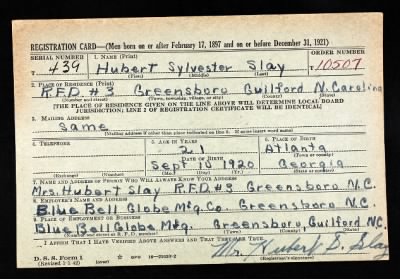 REGISTRATION CARD—(Men born on or after February 17, 1897 and on or before December 31, 1921)
SERIAL NUMBER 1. NAME (Print) ORDER NUMBER
T 439 Hubert Sylvester Slay T 10507
(First) (Middle) (Last)
2. PLACE OF RESIDENCE (Print)
R.F.D. #3 Greensboro Guilford N. Carolina
(Number and street) (Town, township, village, or city) (County) (State)
[THE PLACE OF RESIDENCE GIVEN ON THE LINE ABOVE WILL DETERMINE LOCAL BOARD
JURISDICTION; LINE 2 OF REGISTRATION CERTIFICATE WILL BE IDENTICAL]
3. MAILING ADDRESS
Same
[Mailing address if other than place indicated on line 2. If same insert word same]
4. TELEPHONE 5. AGE IN YEARS 6. PLACE OF BIRTH
21 Atlanta
DATE OF BIRTH (Town or county)
Sept 10 1920 Georgia
(Mo.) (Day) (Yr.) (State or country)
7. NAME AND ADDRESS OF PERSON WHO WILL ALWAYS KNOW YOUR ADDRESS
Mrs. Hubert Slay R.F.D. #3 Greensboro N.C.
8. EMPLOYER'S NAME AND ADDRESS
Blue Bell Globe Mfg. Co. Greensboro N.C.
9. PLACE OF EMPLOYMENT OR BUSINESS
Blue Bell Globe Mfg. Greensboro Guilford N.C.
(Number and street or R. F. D. number) (Town) (County) (State)
I AFFIRM THAT I HAVE VERIFIED ABOVE ANSWERS AND THAT THEY ARE TRUE.
D. S. S. Form 1
Mr. Hubert S. Slay
(Registrant's signature)